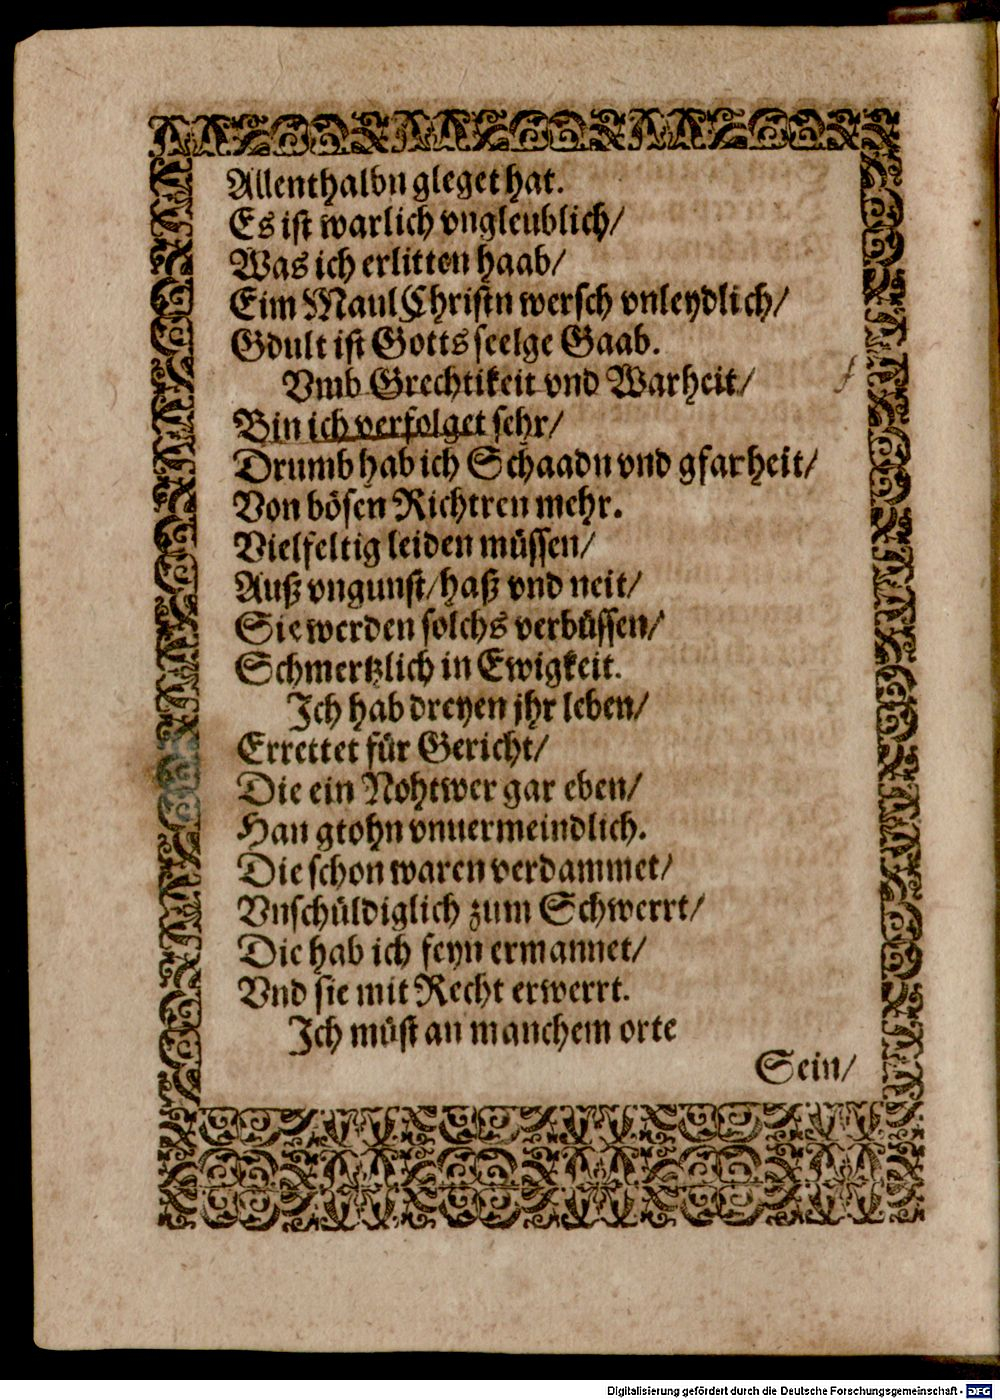 Allenthalbn gleget hat.
Es ist warlich vngleublich/
Was ich erlitten haab/
Eim Maul Christn wersch vnleydlich/
Gdult ist Gotts seelge Gaab.
Vmb Grechtikeit vnd Warheit/
Bin ich verfolget sehr/
Drumb hab ich Schaadn vnd gfarheit/
Von bösen Richtren mehr.
Vielfeltig leiden müssen/
Auß vngunst/ haß vnd neit/
Sie werden solchs verbüssen/
Schmertzlich in Ewigkeit.
Ich hab dreyen jhr leben/
Errettet für Gericht/
Die ein Nohtwer gar eben/
Han gtohn vnuermeindlich.
Die schon waren verdammet/
Vnschüldiglich zum Schwerrt/
Die hab ich feyn ermannet/
Vnd sie mit Recht erwerrt.
Ich müst an manchem orte
Sein/
Digitalisierung gefördert durch die Deutsche Forschungsgemeinschaft - DFG